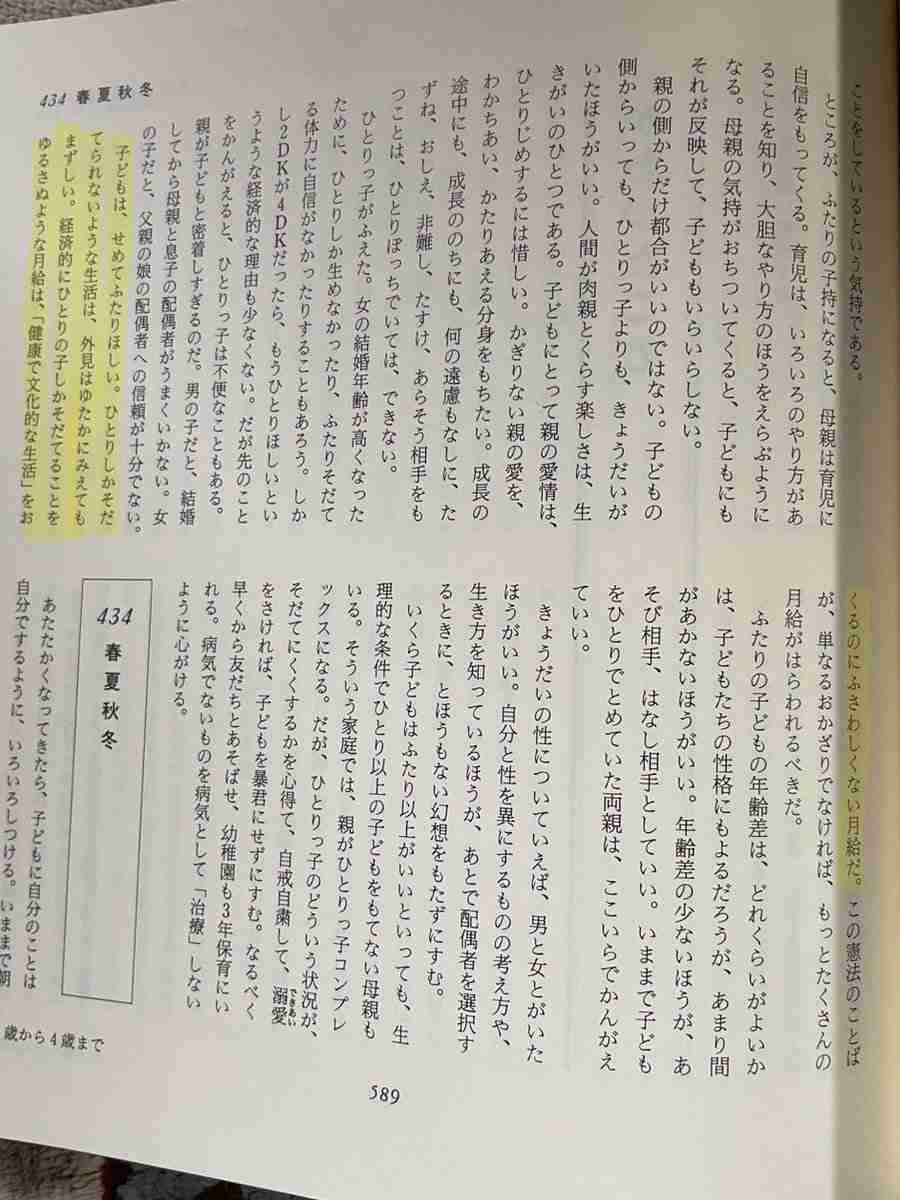 ことをしているという気持である。
ところが、ふたりの子持になると、母親は育児に
自信をもってくる。育児は、いろいろのやり方があ
ることを知り、大胆なやり方のほうをえらぶように
なる。母親の気持がおちついてくると、子どもにも
それが反映して、子どももいらいらしない。
親の側からだけ都合がいいのではない。子どもの
側からいっても、ひとりっ子よりも、きょうだいが
いたほうがいい。人間が肉親とくらす楽しさは、生
きがいのひとつである。子どもにとって親の愛情は、
ひとりじめするには惜しい。かぎりない親の愛を、
わかちあい、かたりあえる分身をもちたい。成長の
途中にも、成長ののちにも、何の遠慮もなしに、た
ずね、おしえ、非難し、たすけ、あらそう相手をも
つことは、ひとりぼっちでいては、できない。
ひとりっ子がふえた。女の結婚年齢が高くなった
ために、ひとりしか生めなかったり、ふたりそだて
る体力に自信がなかったりすることもあろう。しか
し2DKが4DKだったら、もうひとりほしいとい
うような経済的な理由も少なくない。だが先のこと
をかんがえると、ひとりっ子は不便なこともある。
親が子どもと密着しすぎるのだ。男の子だと、結婚
してから母親と息子の配偶者がうまくいかない。女
の子だと、父親の娘の配偶者への信頼が十分でない。
子どもは、せめてふたりほしい。ひとりしかそだ
てられないような生活は、外見はゆたかにみえても
まずしい。経済的にひとりの子しかそだてることを
ゆるさぬような月給は、「健康で文化的な生活」をお
434 春夏秋冬
くるのにふさわしくない月給だ。この憲法のことば
が、単なるおかざりでなければ、もっとたくさんの
月給がはらわれるべきだ。
ふたりの子どもの年齢差は、どれくらいがよいか
は、子どもたちの性格にもよるだろうが、あまり間
があかないほうがいい。年齢差の少ないほうが、あ
そび相手、はなし相手としていい。いままで子ども
をひとりでとめていた両親は、ここいらでかんがえ
ていい。
きょうだいの性についていえば、男と女とがいた
ほうがいい。自分と性を異にするものの考え方や、
生き方を知っているほうが、あとで配偶者を選択す
るときに、とほうもない幻想をもたずにすむ。
いくら子どもはふたり以上がいいといっても、生
理的な条件でひとり以上の子どもをもてない母親も
いる。そういう家庭では、親がひとりっ子コンプレ
ックスになる。だが、ひとりっ子のどういう状況が、
そだてにくくするかを心得て、自戒自粛して、溺愛できあい
をさければ、子どもを暴君にせずにすむ。なるべく
早くから友だちとあそばせ、幼稚園も3年保育にい
れる。病気でないものを病気として「治療」しない
ように心がける。
434 春夏秋冬
あたたかくなってきたら、子どもに自分のことは
自分でするように、いろいろしつける。いままで朝
歳から4歳まで
589